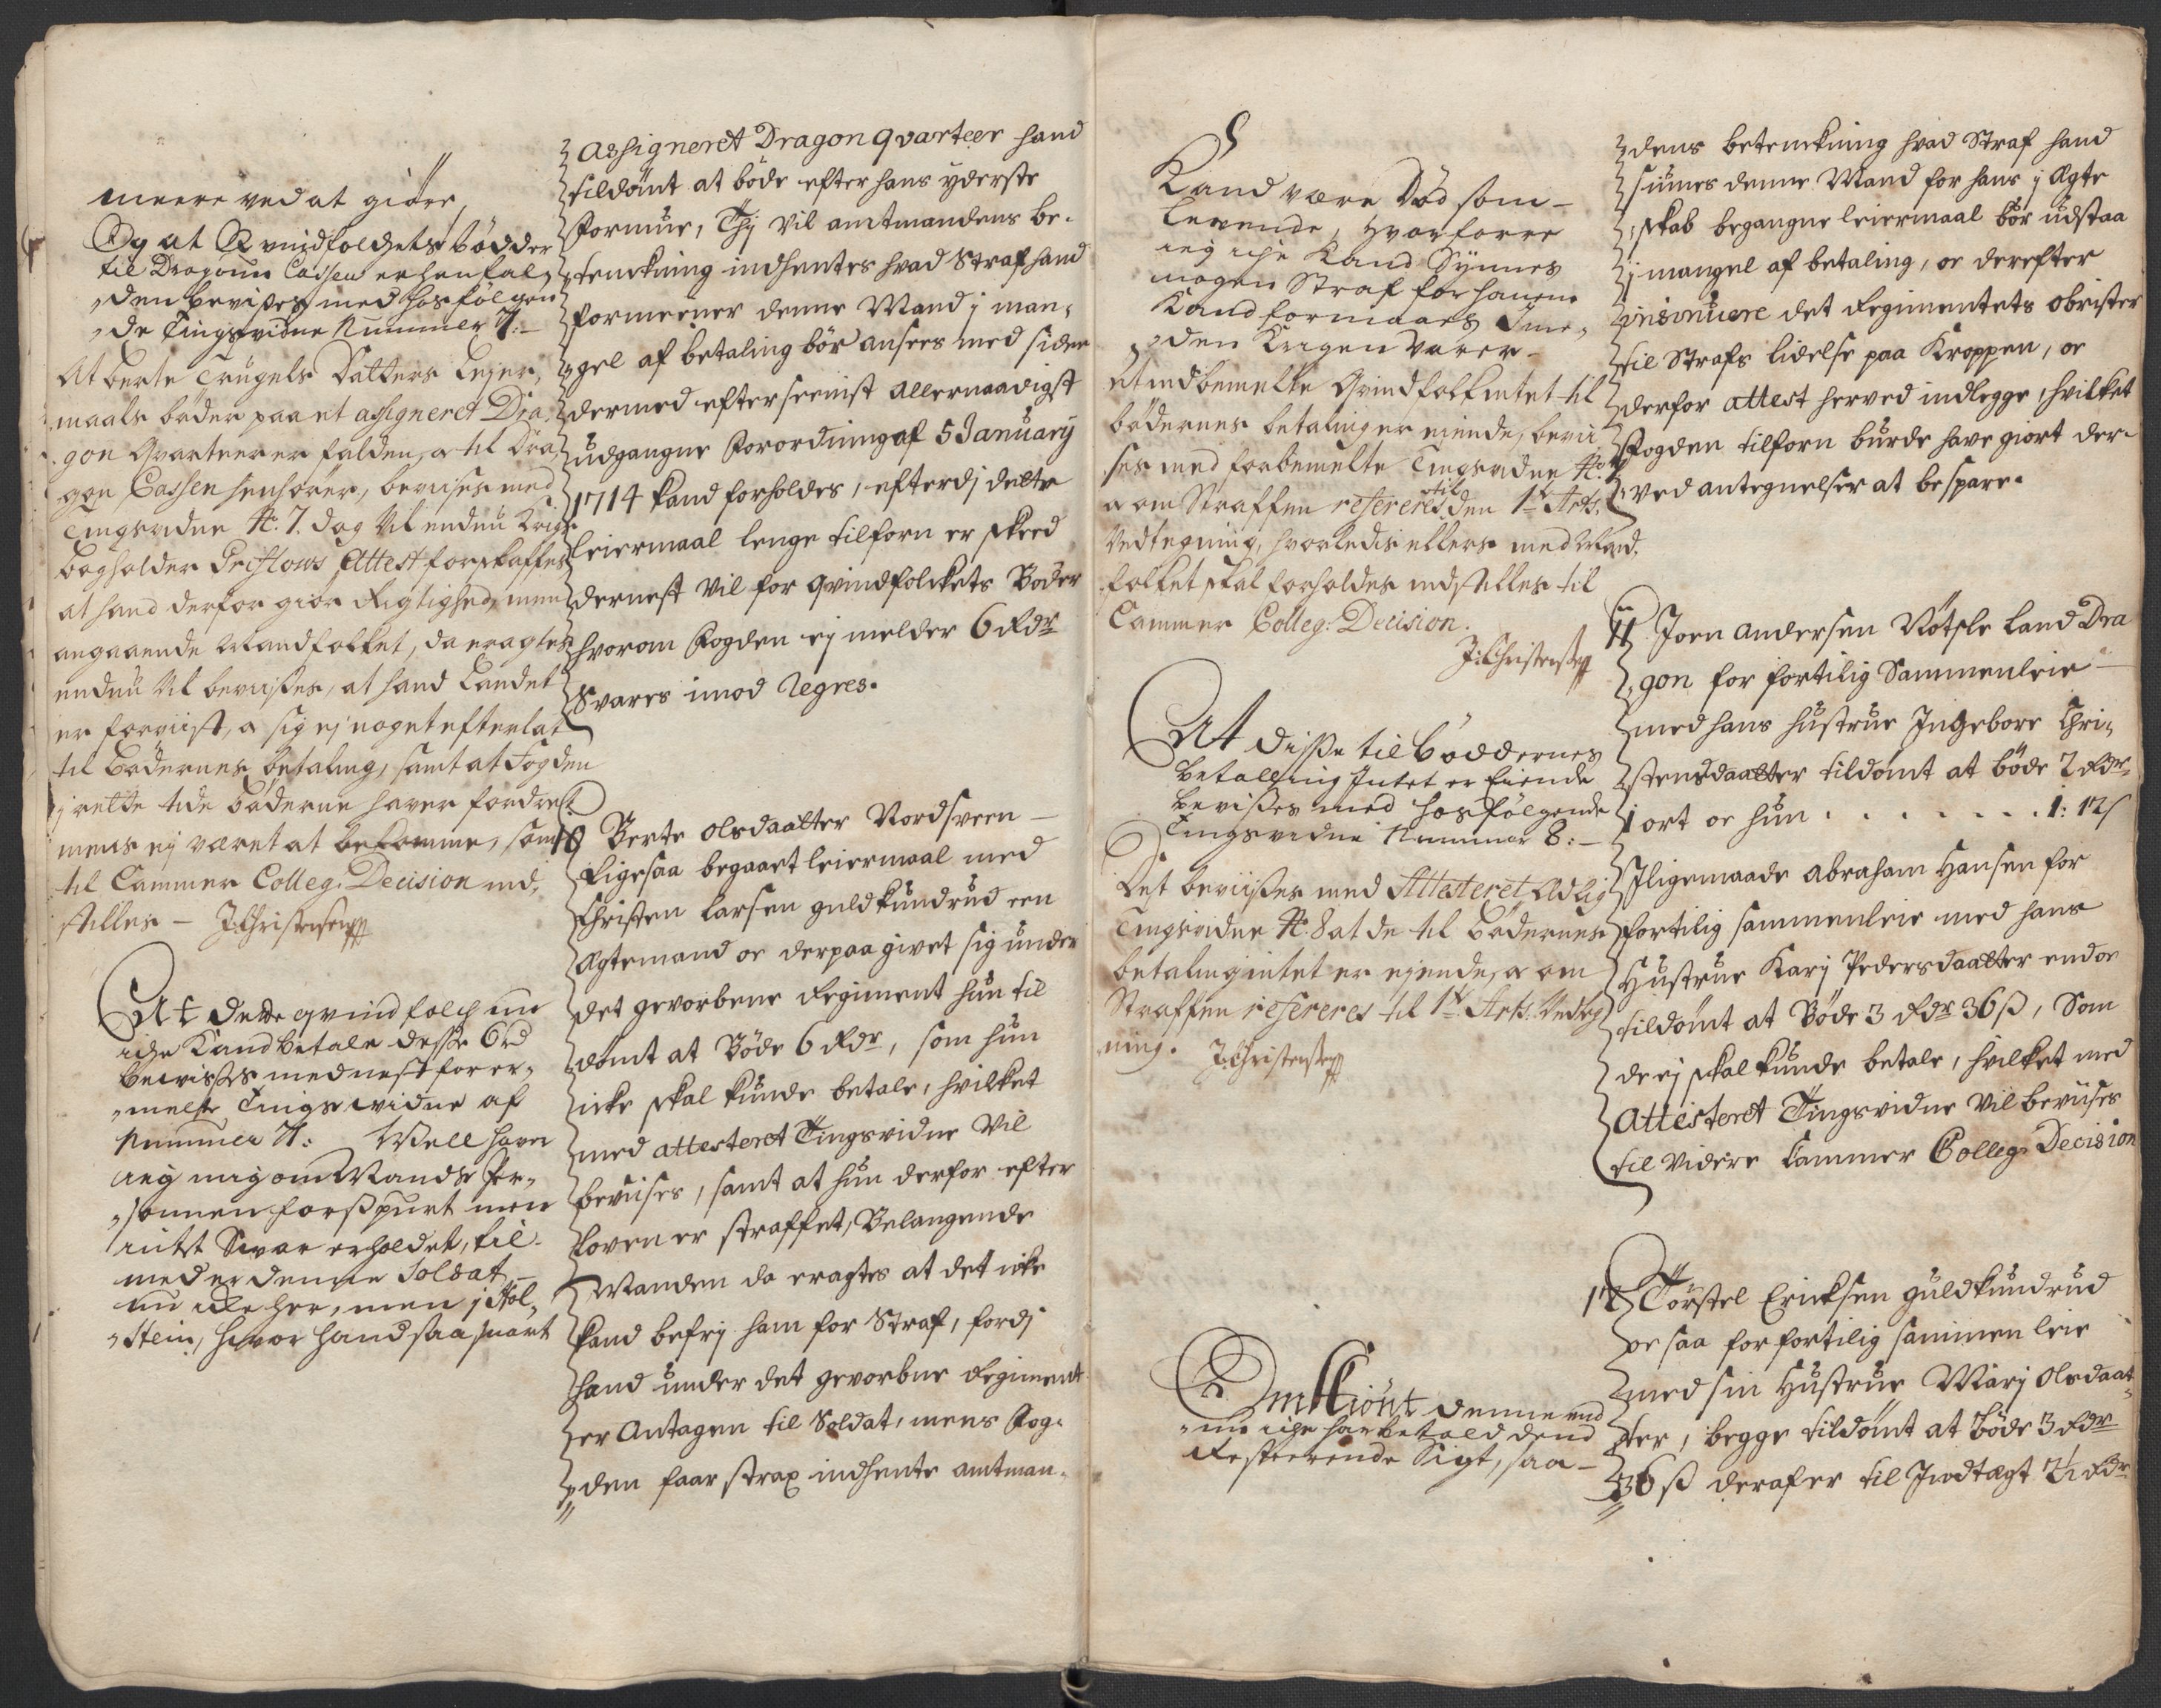 meere ved at giøre,
Og at Qvindfolchets bødder
til Dragoun Cassen er henfal,
den bevises med hosfølgen
de Tingsvidne Nummer 7:
At Berte Trugels Datters Leier,
maals bøder paa et assigneret Dra
gon Qvarteer er falden, og til Dra
gon Cassen henhører, beviises med
Tingsvidne No. 7. dog Vil endnu Krigs
bogholder Attest forskaffes
at hand derfor giør Rigtighed, men
angaaende Mandfolket, da eragtes
endnu Vil beviises, at hand Landet
er forviist, og sig ej noget efterlat
til Bødernes betaling, samt at Fogden
i rette tide bøderne haver fordret
mens ej været at bekomme, som
til Cammer Colleg: Decision ind,
stilles – J:Christensen
At Dette qvindfolch nu
iche Kand betale disse 6 rd
bevises med nest forer,
melte Tingsvidne af
Nummer 7: Well haver
ieg mig om Mands Per,
sonnen forspurt men
intet Svar erholdet, til
med er denne Soldat
nu iche her, men i Hol,
stein, hvor hand saa snart
Assigneret Dragon qvarteer hand
tildømt at bøde efter hans yderste
formue, Thj Vil amtmandens be,
tenckning indhentes hvad Straf hand
formeener denne Mand i man,
gel af betaling bør ansees med siden
dermed efter seenist allernaadigst
udgangne Forordning af 5 January
1714 kand forholdes, efterdj dette
leiermaal lenge tilforn er skeed
dernest Vil for qvindfolckets Bøder
hvorom Fogden ej melder 6 Rdr
Svares imod Regres.
10 Berte Olsdaatter Nordsveen –
Ligesaa begaaet leiermaal med
Christen Larsen guldkundrud een
Ægtemand oc derpaa givet sig under
det gevorbene Regiment hun til
dømt at Bøde 6 Rdr, som hun
icke skal kunde betale, hvilket
med attesteret Tingsvidne Vil
beviises, samt at hun derfor efter
Loven er straffet, Belangende
Manden da eragtes at det icke
kand befrj ham for Straf, fordj
hand under det gevorbne Regiment
er Antagen til Soldat, mens Fog,
den faar strax indhente amtman,
Kand være Død som –
Levende, hvorforre
ieg iche Kand Synnes
nogen Straf for hanem
Kand formaaes Ime,
den Krigen varer –
At indbemelte Qvindfolk intet til
bødernes betaling er eiende, bevii
ses med forbemelte Tingsvidne No. 7
og om Straffen refereres til den 1te Arts.
Vedtegning, hvorledis ellers med Mand,
folket skal forholdes indstilles til
Cammer Colleg: Decision.
J:Christensen
At disse til bøddernes
betalling Intet er Eiende
bevises med hosfølgende
Tingsvidne Nummer 8: –
Det beviises med Attesteret Lovlig
Tingsvidne No. 8 at de til Bødernes
betaling intet er ejende, og om
Straffen refereres til 1te Arts. Vedteg
ning. J:Christensen
Omskiønt denne end
nu iche har betald dend
Resterende Sigt, saa –
dens betenckning hvad Straf hand
siunes denne Mand for hans i Ægte
skab begangne leiermaal bør udstaa
i mangel af betaling, oc derefter
insinuere det Regimentets obrister
til Strafs lidelse paa Kroppen, oc
derfor attest herved indlegge, hvilket
Fogden tilforn burde have giort der,
ved antegnelser at bespare.
11 Joen Andersen Nøtsle Land Dra
gon for fortilig Sammenleie –
med hans hustrue Ingebore Chri,
stensdaatter tildømt at bøde 2 Rdr
1 ort oc hun . . . . . . 1: 12 s
Iligemaade Abraham Hansen for
fortilig sammenleie med hans
Hustrue Karj Pedersdaatter endoc
tildømt at Bøde 3 Rdr 36 ß, Som
de ej skal kunde betale, hvilket med
Attesteret Tingsvidne Vil beviises
til Videre Cammer Colleg: Decision
12 Tørstel Ericksen guldkundrud
oc saa for fortilig sammen leie
med sin Hustrue Marj Olsdaat,
ter, begge tildømt at bøde 3 Rdr
36 ß deraf er til Indtægt 2½ Rdr